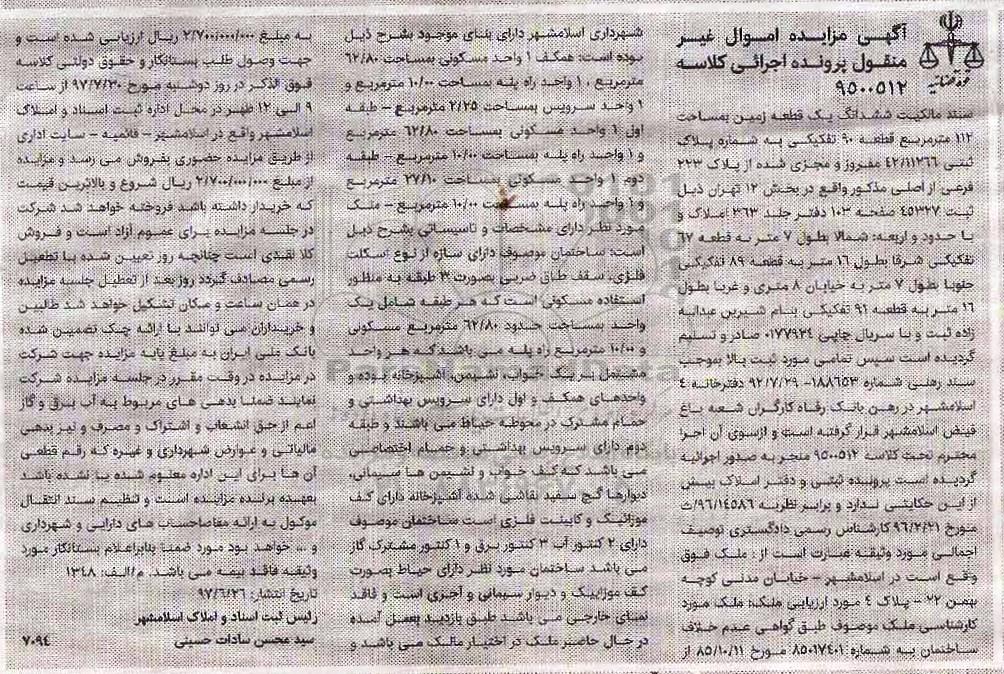 آگهی مزایده اموال غیر
منقول پرونده اجرائی کلاسه
۹۵۰۰۵۱۲
سند مالکیت ششدانگ یک قطعه زمین بمساحت
۱۱۲ مترمربع قطعه ۹۰ تفکیکی به شماره پلاک
ثبتی ۴۲/۱۱۲۶۶ مفروز و مجزی شده از پلاک ۲۲۳
فرعی از اصلی مذکور واقع در بخش ۱۲ تهران ذیل
ثبت ۴۵۳۲۷ صفحه ۱۰۳ دفتر جلد ۲۶۳ املاک و
با حدود و اربعه: شمالا بطول ۷ متر به قطعه ۶۷
تفکیکی شرقا بطول ۱۶ متر به قطعه ۸۹ تفکیکی
جنوبا بطول ۷ متر به خیابان ۸ متری و غربا بطول
۱۶ متر به قطعه ۹۱ تفکیکی بنام شیرین عبداله
زاده ثبت و با سریال چاپی ۰۱۷۷۹۲۴ صادر و تسلیم
گردیده است سپس تمامی مورد ثبت بالا بموجب
سند رهنی شماره ۱۸۸۶۵۳- ۹۲/۷/۲۹ دفترخانه ۴
اسلامشهر در رهن بانک رفاه کارگران شعبه باغ
فیض اسلامشهر قرار گرفته است و ازسوی آن اجرا
محترم تحت کلاسه ۹۵۰۰۵۱۲ منجر به صدور اجرائیه
گردیده است پرونده ثبتی و دفتر املاک بیش
از این حکایتی ندارد و برابر نظریه ۹۶/۱۴۵۸۶/ث
مورخ ۹۶/۲/۲۱ کارشناس رسمی دادگستری توصیف
اجمالی مورد وثیقه عبارت است از : ملک فوق
واقع است در اسلامشهر – خیابان مدنی کوچه
بهمن ۲۲ – پلاک ۴ مورد ارزیابی ملک: ملک مورد
کارشناسی ملک موصوف طبق گواهی عدم خلاف
ساختمان به شماره: ۸۵۰۱۷۴۰۱ مورخ ۸۵/۱۰/۱۱ از
شهرداری اسلامشهر دارای بنای موجود بشرح ذیل
بوده است: همکف ۱ واحد مسکونی بمساحت ۶۲/۸۰
مترمربع ، ۱ واحد راه پله بمساحت ۱۰/۰۰ مترمربع و
۱ واحد سرویس بمساحت ۲/۲۵ مترمربع – طبقه
اول ۱ واحد مسکونی بمساحت ۶۲/۸۰ مترمربع
و ۱ واحد راه پله بمساحت ۱۰/۰۰ مترمربع – طبقه
دوم ۱ واحد مسکونی بمساحت ۲۷/۱۰ مترمربع
و ۱ واحد راه پله بمساحت ۱۰/۰۰ مترمربع – ملک
مورد نظر دارای مشخصات و تاسیساتی بشرح ذیل
است: ساختمان موصوف دارای سازه از نوع اسکلت
فلزی، سقف طاق ضربی بصورت ۳ طبقه به منظور
استفاده مسکونی است که هر طبقه شامل یک
واحد بمساحت حدود ۶۲/۸۰ مترمربع مسکونی
و ۱۰/۰۰ مترمربع راه پله می باشد که هر واحد
مشتمل بر یک خواب، نشیمن، آشپزخانه بوده و
واحدهای همکف و اول دارای سرویس بهداشتی و
حمام مشترک در محوطه حیاط می باشند و طبقه
دوم دارای سرویس بهداشتی و حمام اختصاصی
می باشد که کف خواب و نشیمن ها سیمانی،
دیوارها گچ سفید نقاشی شده آشپزخانه دارای کف
موزائیک و کابینت فلزی است ساختمان موصوف
دارای ۲ کنتور آب ۳ کنتور برق و ۱ کنتور مشترک گاز
می باشد ساختمان مورد نظر دارای حیاط بصورت
کف موزاییک و دیوار سیمانی و آجری است و فاقد
نمای خارجی می باشد طبق بازدید بعمل آمده
در حال حاضر ملک در اختیار مالک می باشد و
به مبلغ ۲/۷۰۰/۰۰۰/۰۰۰ ریال ارزیابی شده است و
جهت وصول طلب بستانکار و حقوق دولتی کلاسه
فوق الذکر در روز دوشنبه مورخ ۹۷/۷/۳۰ از ساعت
۹ الی ۱۲ ظهر در محل اداره ثبت اسناد و املاک
اسلامشهر واقع در اسلامشهر – قائمیه – سایت اداری
از طریق مزایده حضوری بفروش می رسد و مزایده
از مبلغ ۲/۷۰۰/۰۰۰/۰۰۰ ریال شروع و بالاترین قیمت
که خریدار داشته باشد فروخته خواهد شد شرکت
در جلسه مزایده برای عموم آزاد است و فروش
کلا نقدی است چنانچه روز تعیین شده با تعطیل
رسمی مصادف گردد روز بعد از تعطیل جلسه مزایده
در همان ساعت و مکان تشکیل خواهد شد طالبین
و خریداران می توانند با ارائه چک تضمین شده
بانک ملی ایران به مبلغ پایه مزایده جهت شرکت
در مزایده در وقت مقرر در جلسه مزایده شرکت
نمایند ضمنا بدهی های مربوط به آب برق و گاز
اعم از حق انشعاب و اشتراک و مصرف و نیز بدهی
مالیاتی و عوارض شهرداری و غیره که رقم قطعی
آن ها برای این اداره معلوم شده یا نشده باشد
بعهده برنده مزایده است و تنظیم سند انتقال
موکول به ارائه مفاصاحساب های دارایی و شهرداری
و ... خواهد بود مورد ضمنا بنابراعلام بستانکار مورد
وثیقه فاقد بیمه می باشد. م/الف: ۱۳۴۸
تاریخ انتشار: ۹۷/۶/۲۶
رئیس ثبت اسناد و املاک اسلامشهر
سید محسن سادات حسینی
۷۰۹۴